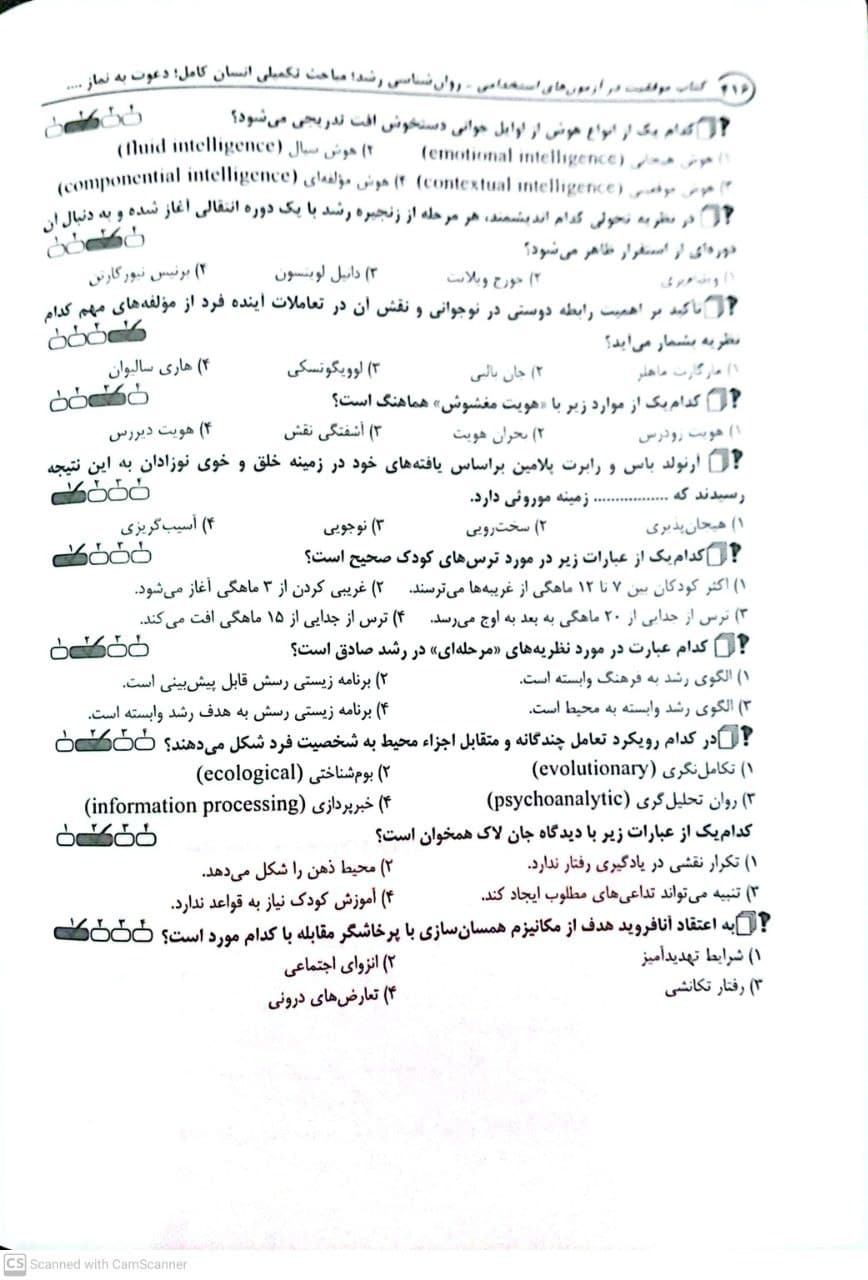 ۴۱۶ کتاب موفقیت در آزمون‌های استخدامی - روان‌شناسی رشد؛ مباحث تکمیلی انسان کامل؛ دعوت به نماز ....
کدام یک از انواع هوش از اوایل جوانی دستخوش افت تدریجی می‌شود؟ ۱ ۲ ۳ ۴
۱) هوش هیجانی (emotional intelligence) ۲) هوش سیال (fluid intelligence)
۳) هوش موقعیتی (contextual intelligence) ۴) هوش مؤلفه‌ای (componential intelligence)
در نظریه تحولی کدام اندیشمند، هر مرحله از زنجیره رشد با یک دوره انتقالی آغاز شده و به دنبال آن
دوره‌ای از استقرار ظاهر می‌شود؟ ۱ ۲ ۳ ۴
۱) ۲) جورج ویلانت ۳) دانیل لوینسون ۴) برنیس نیوگارتن
تأکید بر اهمیت رابطه دوستی در نوجوانی و نقش آن در تعاملات آینده فرد از مؤلفه‌های مهم کدام
نظریه بشمار می‌آید؟ ۱ ۲ ۳ ۴
۱) مارگارت ماهلر ۲) جان بالبی ۳) لوویگوتسکی ۴) هاری سالیوان
کدام‌یک از موارد زیر با «هویت مغشوش» هماهنگ است؟ ۱ ۲ ۳ ۴
۱) هویت زودرس ۲) بحران هویت ۳) آشفتگی نقش ۴) هویت دیررس
آرنولد باس و رابرت پلامین براساس یافته‌های خود در زمینه خلق و خوی نوزادان به این نتیجه
رسیدند که ................. زمینه موروثی دارد. ۱ ۲ ۳ ۴
۱) هیجان‌پذیری ۲) سخت‌رویی ۳) نوجویی ۴) آسیب‌گریزی
کدام‌یک از عبارات زیر در مورد ترس‌های کودک صحیح است؟ ۱ ۲ ۳ ۴
۱) اکثر کودکان بین ۷ تا ۱۲ ماهگی از غریبه‌ها می‌ترسند. ۲) غریبی کردن از ۳ ماهگی آغاز می‌شود.
۳) ترس از جدایی از ۲۰ ماهگی به بعد به اوج می‌رسد. ۴) ترس از جدایی از ۱۵ ماهگی افت می‌کند.
کدام عبارت در مورد نظریه‌های «مرحله‌ای» در رشد صادق است؟ ۱ ۲ ۳ ۴
۱) الگوی رشد به فرهنگ وابسته است. ۲) برنامه زیستی رسش قابل پیش‌بینی است.
۳) الگوی رشد وابسته به محیط است. ۴) برنامه زیستی رسش به هدف رشد وابسته است.
در کدام رویکرد تعامل چندگانه و متقابل اجزاء محیط به شخصیت فرد شکل می‌دهند؟ ۱ ۲ ۳ ۴
۱) تکامل‌نگری (evolutionary) ۲) بوم‌شناختی (ecological)
۳) روان تحلیل‌گری (psychoanalytic) ۴) خبرپردازی (information processing)
کدام‌یک از عبارات زیر با دیدگاه جان لاک همخوان است؟ ۱ ۲ ۳ ۴
۱) تکرار نقشی در یادگیری رفتار ندارد. ۲) محیط ذهن را شکل می‌دهد.
۳) تنبیه می‌تواند تداعی‌های مطلوب ایجاد کند. ۴) آموزش کودک نیاز به قواعد ندارد.
به اعتقاد آنافروید هدف از مکانیزم همسان‌سازی با پرخاشگر مقابله با کدام مورد است؟ ۱ ۲ ۳ ۴
۱) شرایط تهدیدآمیز ۲) انزوای اجتماعی
۳) رفتار تکانشی ۴) تعارض‌های درونی
CS Scanned with CamScanner